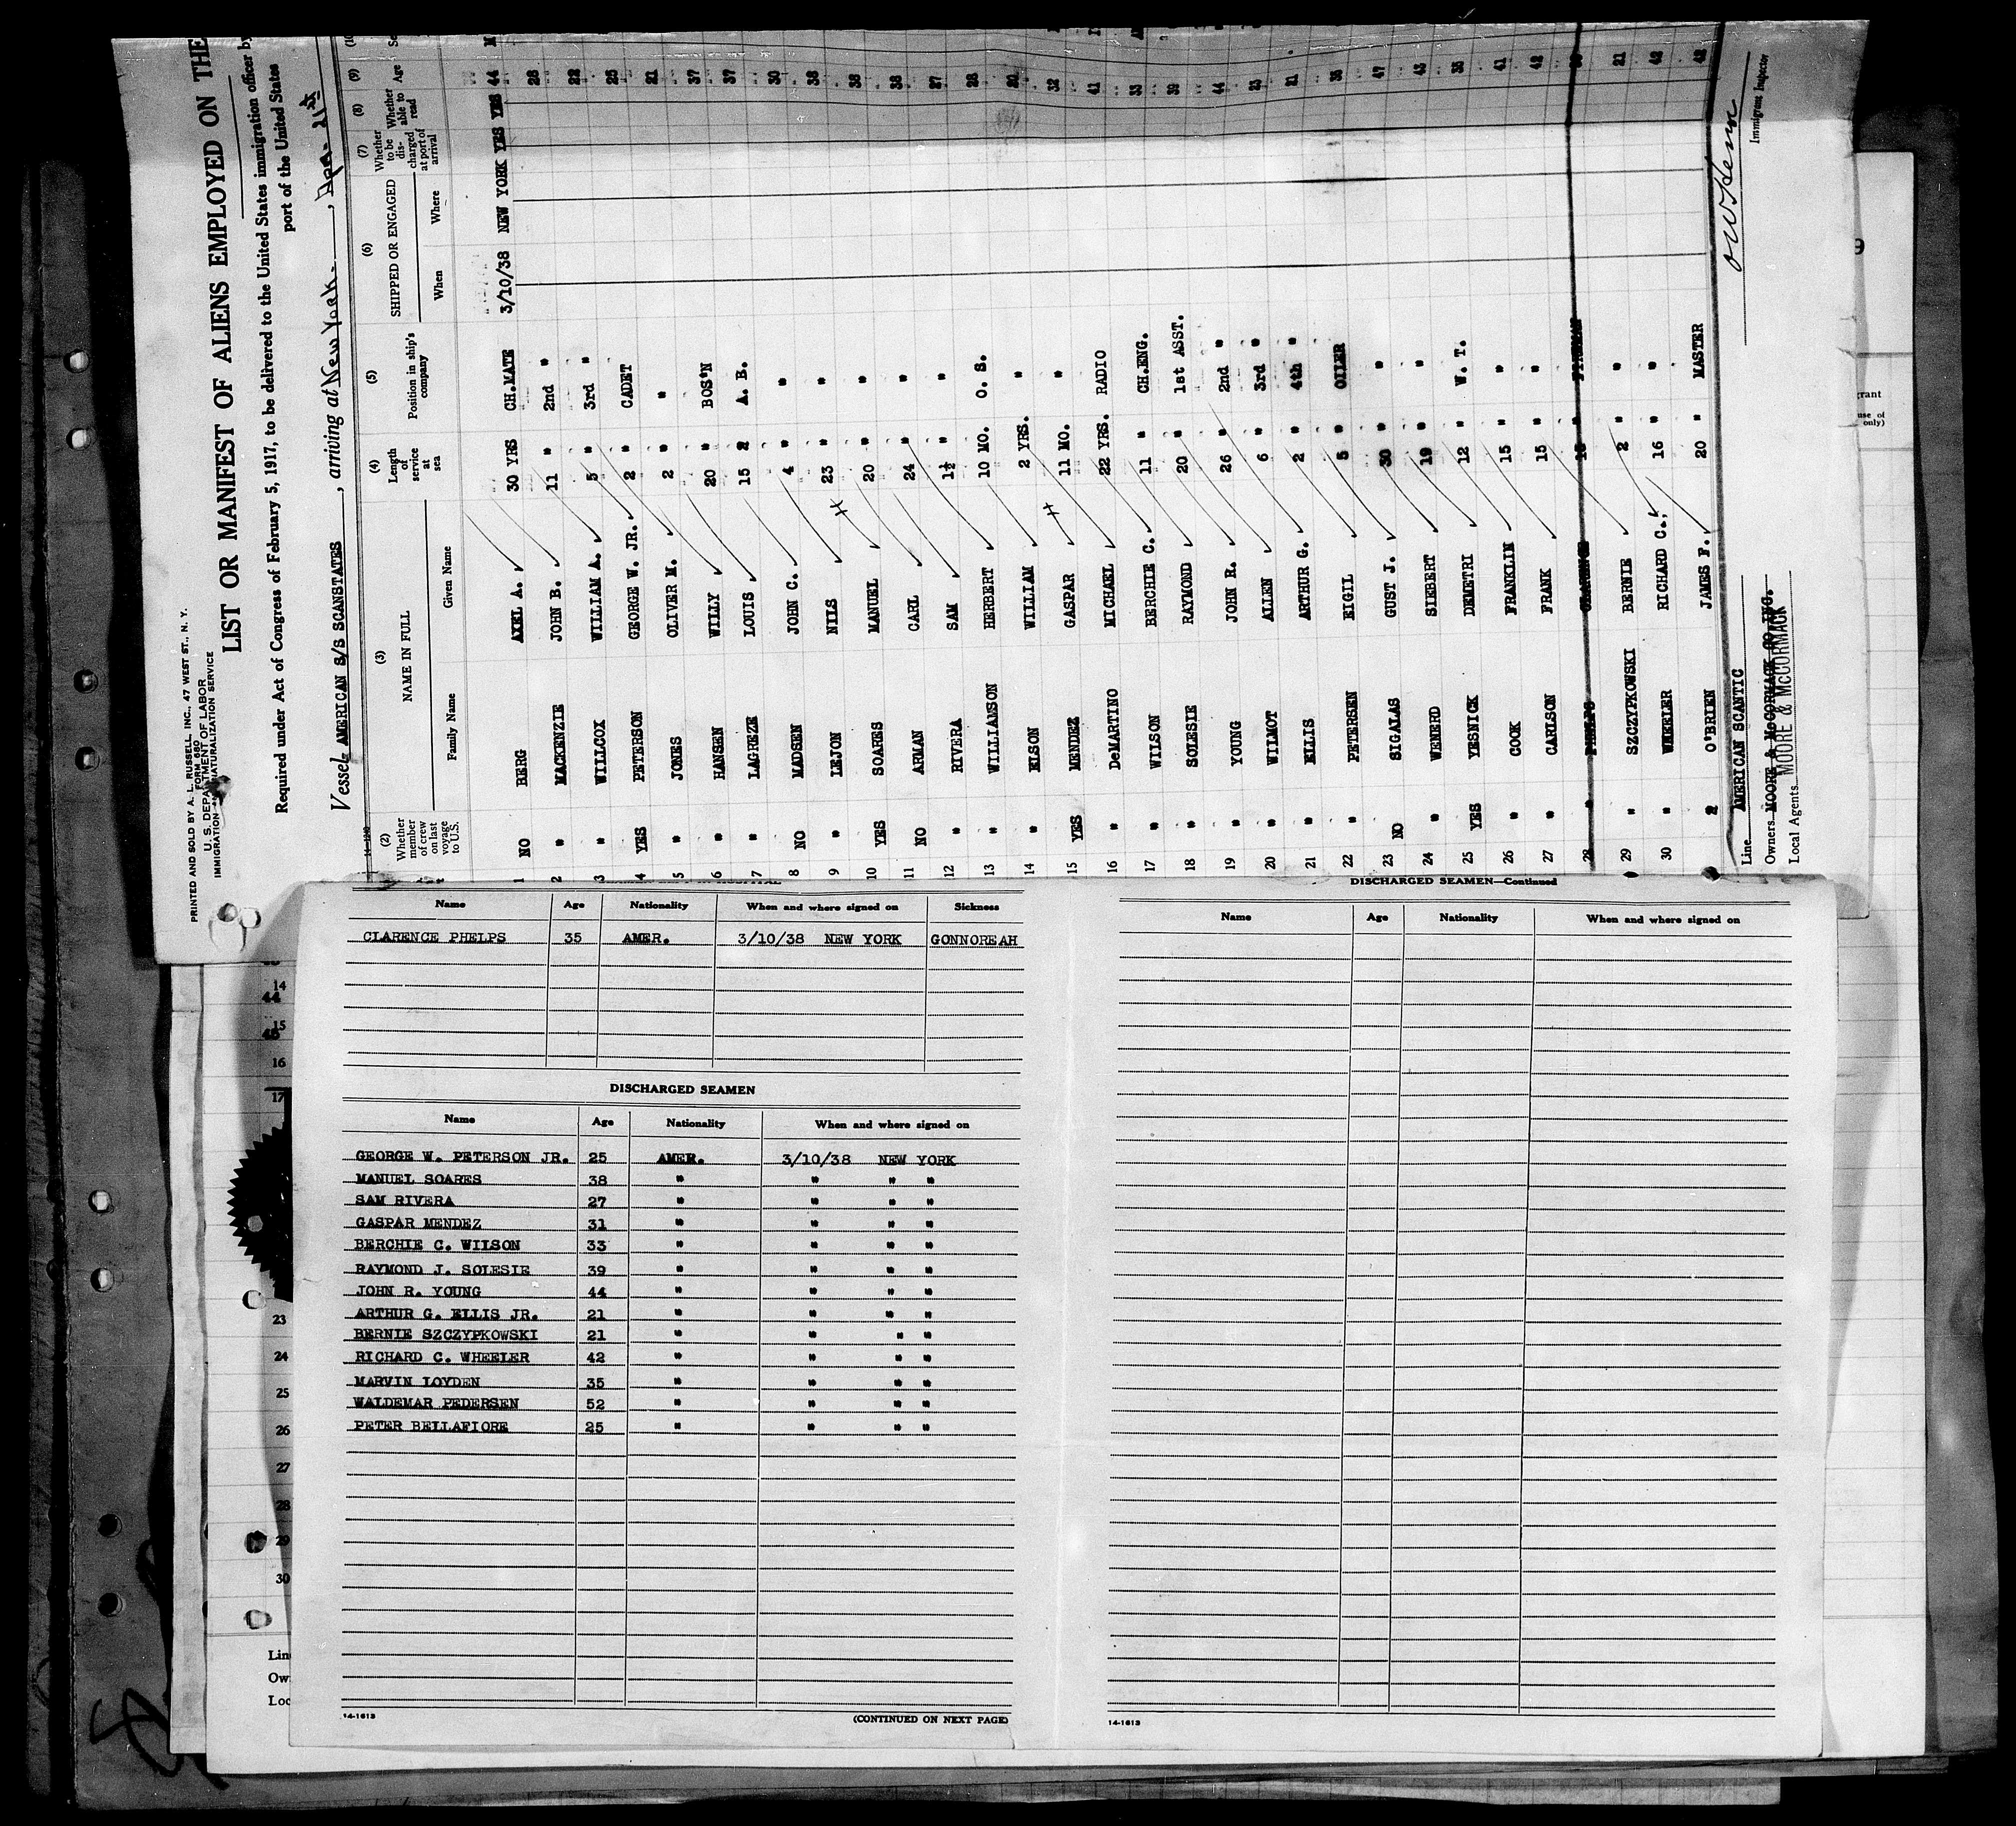 PRINTED AND SOLD BY A. L. RUSSELL, INC., 47 WEST ST., N. Y.
FORM 680
U. S. DEPARTMENT OF LABOR
IMMIGRATION AND NATURALIZATION SERVICE
LIST OR MANIFEST OF ALIENS EMPLOYED ON THE
Required under Act of Congress of February 5, 1917, to be delivered to the United States immigration officer by
port of the United States
Vessel AMERICAN S/S SCANSTATES, arriving at New York, Apr. 21st
(2) (3) (4) (5) (6) (7) (8) (9)
Whether member of crew on last voyage to U.S. NAME IN FULL Family Name Given Name Length of service at sea Position in ship's company SHIPPED OR ENGAGED When Where Whether to be discharged at port of arrival Whether able to read Age
1 NO BERG AXEL A. 30 YRS CH.MATE 3/10/38 NEW YORK YES YES 44
2 " MACKENZIE JOHN B. 11 " 2nd " 28
3 " WILLCOX WILLIAM A. 5 " 3rd " 22
4 YES PETERSON GEORGE W. JR. 2 " CADET 25
5 " JONES OLIVER M. 2 " " 21
6 " HANSEN WILLY 20 " BOS'N 37
7 " LAGREZE LOUIS 15 " A. B. 37
8 NO MADSEN JOHN C. 4 " " 30
9 " LEJON NILS 23 " " 38
10 YES SOARES MANUEL 20 " " 38
11 NO ARMAN CARL 24 " " 38
12 " RIVERA SAM 1½ " " 27
13 " WILLIAMSON HERBERT 10 MO. O. S. 28
14 " ELSON WILLIAM 2 YRS. "
15 YES MENDEZ GASPAR 11 MO. " 32
16 " DeMARTINO MICHAEL 22 YRS. RADIO 41
17 " WILSON BERCHIE C. 11 " CH.ENG. 33
18 " SOLESIE RAYMOND 20 " 1st ASST. 39
19 " YOUNG JOHN R. 26 " 2nd " 44
20 " WILMOT ALLEN 6 " 3rd " 23
21 " ELLIS ARTHUR G. 2 " 4th " 21
22 " PETERSEN EIGIL 5 " OILER
23 NO SIGALAS GUST J. 30 " " 47
24 " WENERD SIEBERT 19 " "
25 YES YESNICK DEMETRI 12 " W. T.
26 " COOK FRANKLIN 15 " " 41
27 " CARLSON FRANK 15 " " 42
28 " PHELPS CLARENCE FIREMAN
29 " SZCZYPKOWSKI BERNIE 2 " " 21
30 " WHEELER RICHARD C. 16 " " 42
O'BRIEN JAMES F. 20 " MASTER 42
Line AMERICAN SCANTIC
Owners MOORE & McCORMACK CO INC.
Local Agents MOORE & McCORMACK
Immigrant Inspector
Name Age Nationality When and where signed on Sickness
CLARENCE PHELPS 35 AMER. 3/10/38 NEW YORK GONNOREAH
DISCHARGED SEAMEN
Name Age Nationality When and where signed on
GEORGE W. PETERSON JR. 25 AMER. 3/10/38 NEW YORK
MANUEL SOARES 38 " " " "
SAM RIVERA 27 " " " "
GASPAR MENDEZ 31 " " " "
BERCHIE C. WILSON 33 " " " "
RAYMOND J. SOLESIE 39 " " " "
JOHN R. YOUNG 44 " " " "
ARTHUR G. ELLIS JR. 21 " " " "
BERNIE SZCZYPKOWSKI 21 " " " "
RICHARD C. WHEELER 42 " " " "
MARVIN LOYDEN 35 " " " "
WALDEMAR PEDERSEN 52 " " " "
PETER BELLAFIORE 25 " " " "
14-1613
(CONTINUED ON NEXT PAGE)
DISCHARGED SEAMEN—Continued
Name Age Nationality When and where signed on
14-1613
14
44
15
16
17
23
24
25
26
27
28
29
30